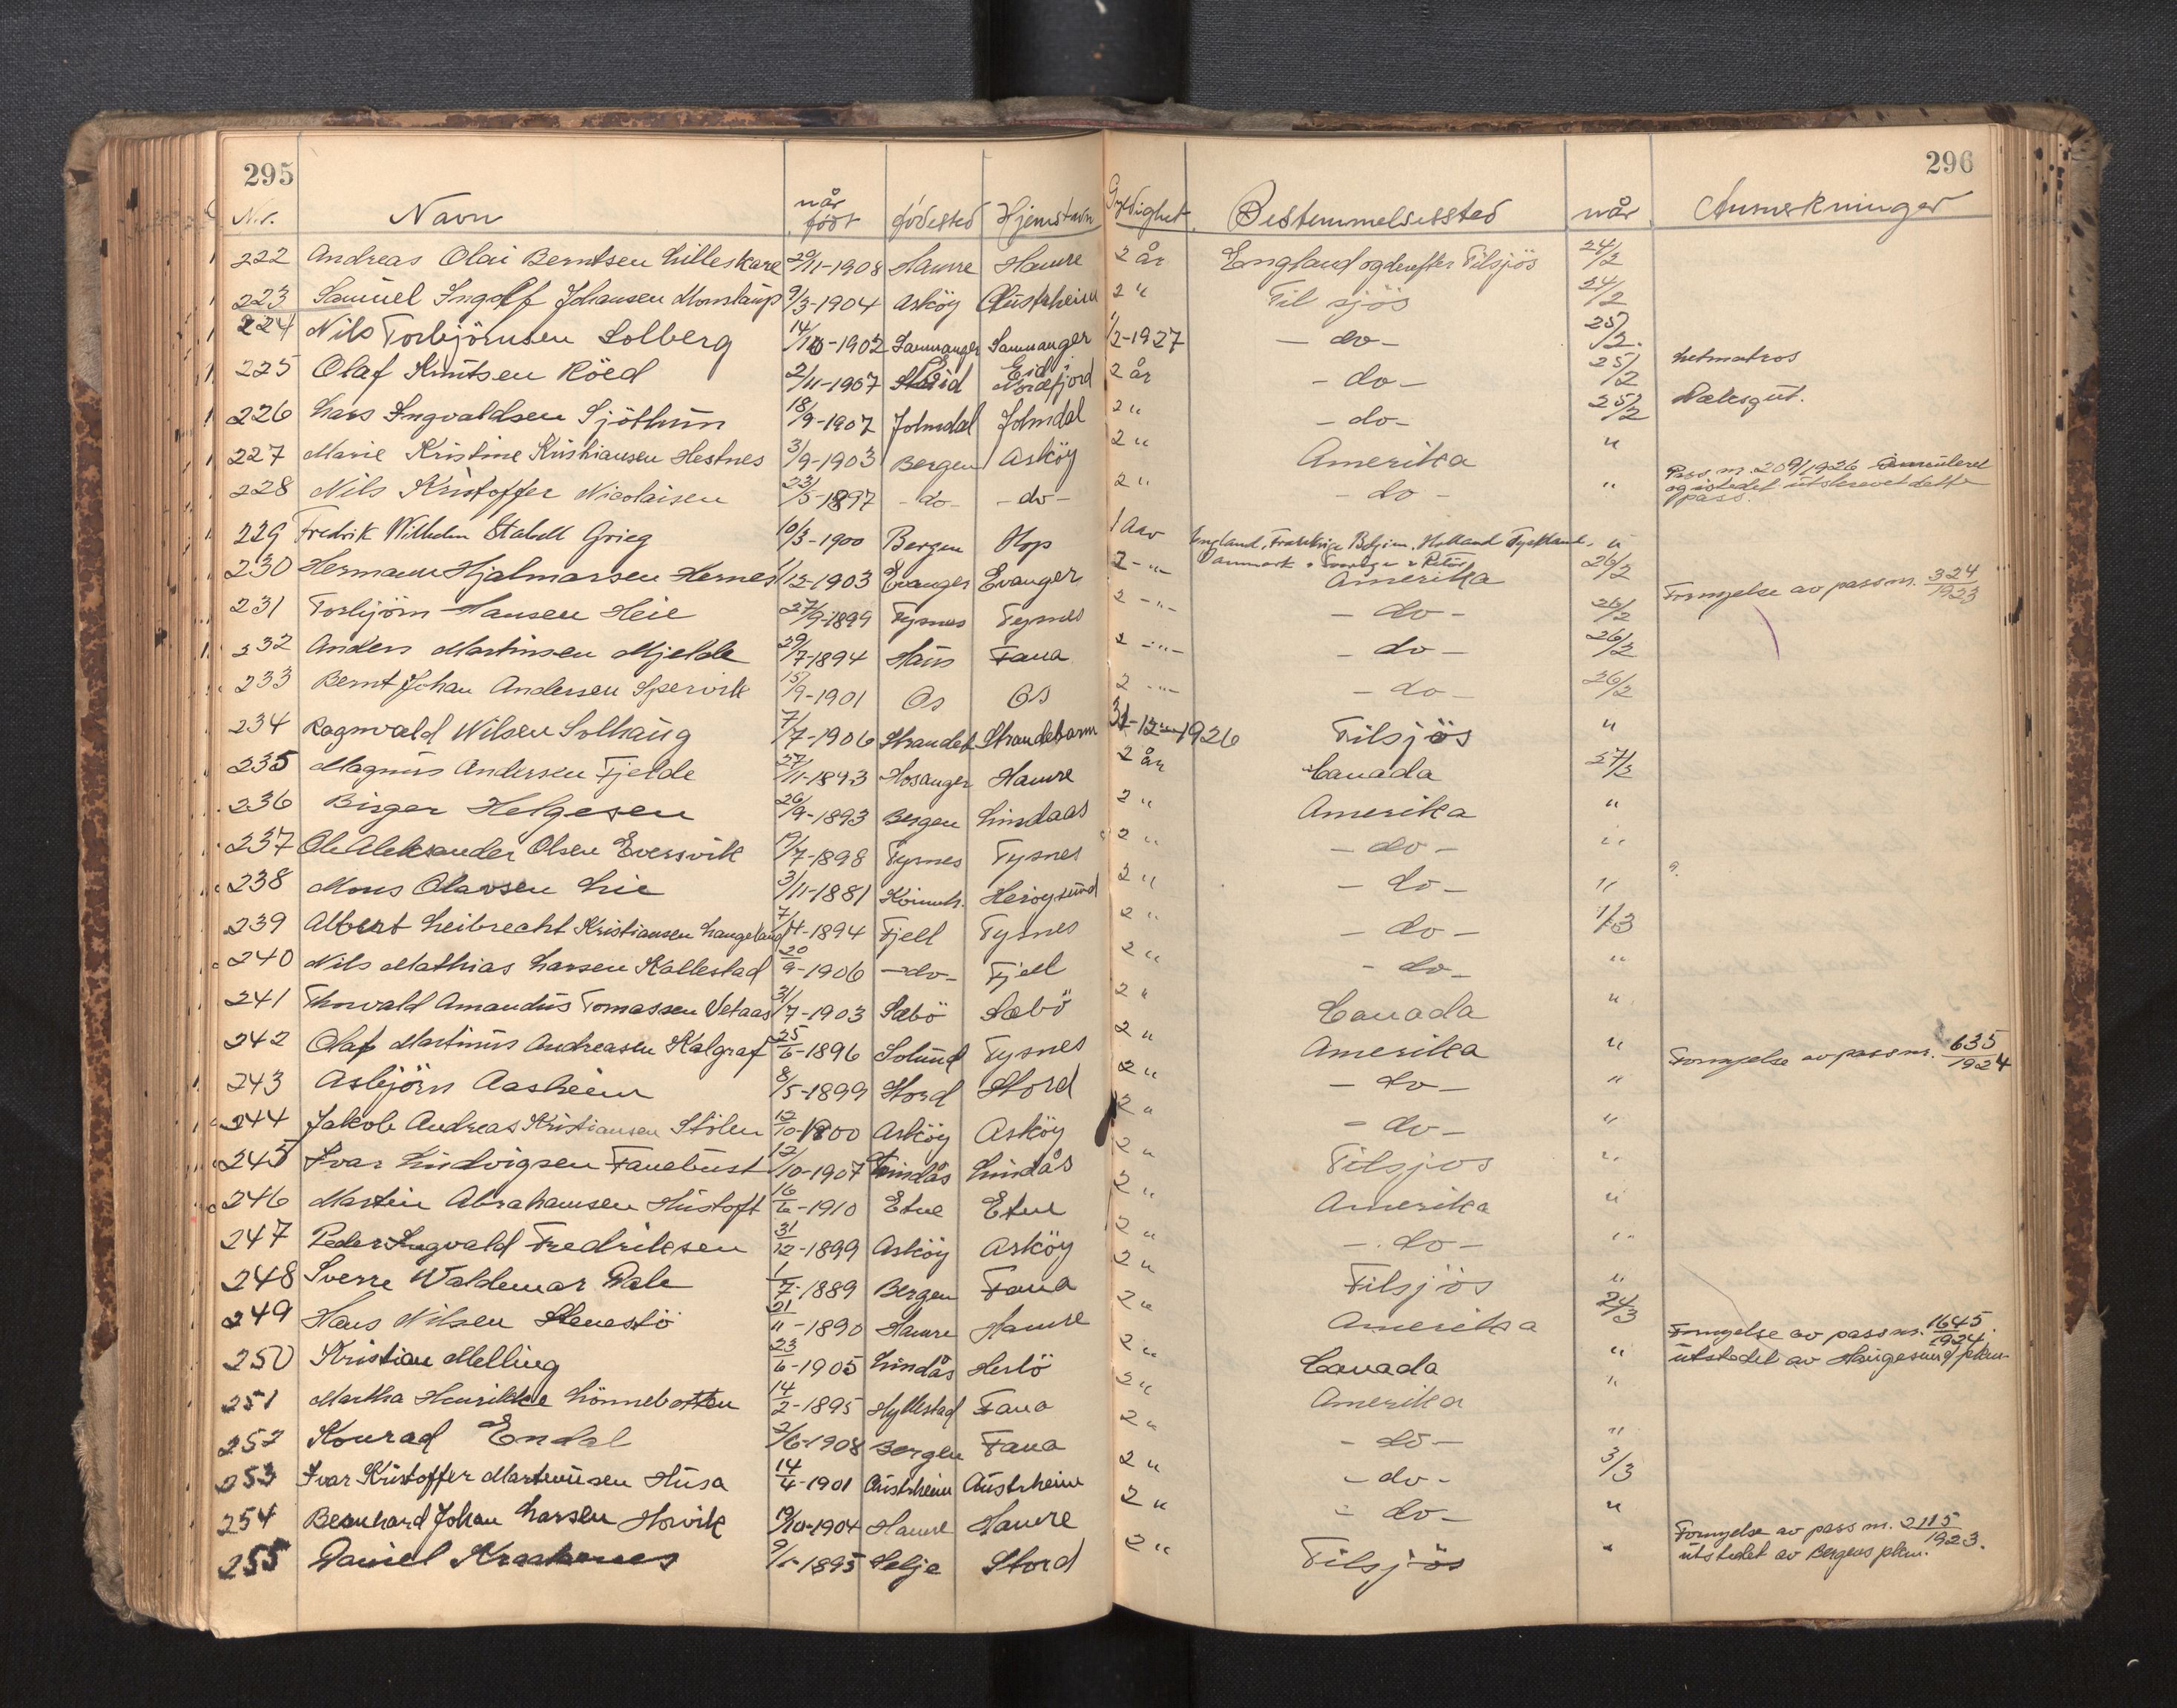 295 296
Nr. Navn når født fødested Hjemstavn Gyldighet Bestemmelsessted når Anmerkninger
222 Andreas Olai Berntsen Lilleskare 29/11-1908 Hamre Hamre 2 år England og derefter Tilsjös 24/2
223 Samuel Ingolf Johansen Monstrup 9/3-1904 Asköy Austrheim 2 " Til sjös 24/2
224 Nils Torbjörnsen Solberg 14/10-1902 Samnanger Samnanger 1/2-1927 - do - 25/2.
225 Olaf Knutsen Röed 2/11-1907 Eid Eid Nordfjord 2 år - do - 25/2 Letmatros
226 Lars Ingvaldsen Sjöthun 18/9-1907 Jolmdal Jolmdal 2 " - do - 25/2 Dæksgut.
227 Marie Kristine Kristiansen Hestnes 3/9-1903 Bergen Asköy 2 " Amerika "
228 Nils Kristoffer Nicolaisen 23/5-1897 - do - - do - 2 " - do - " Pass nr. 209/1926 annuleret
og istedet utskrevet dette
pass.
229 Fredrik Wilhelm Stabell Grieg 10/3-1900 Bergen Hop 1 Aar England, Frankrig, Belgien, Holland Tyskland, "
Danmark, Sverige & Retur
230 Hermann Hjalmarsen Hernes 1/12-1903 Evanger Evanger 2 - " - Amerika 26/2
231 Torbjörn Hansen Heie 27/9-1899 Tysnes Tysnes 2 - " - - do - 26/2 Fornyelse av pass nr. 324/1923
232 Anders Martinsen Mjelde 29/7-1894 Haus Fana 2 - " - - do - 26/2
233 Bernt Johan Andersen Spervik 15/9-1901 Os Os 2 - " - - do - 26/2
234 Ragnvald Nilsen Solhaug 7/7-1906 Strandeb. Strandebarm 31-12-1926 Tilsjös "
235 Magnus Andersen Fjelde 27/11-1893 Hosanger Hamre 2 år Canada 27/2
236 Birger Helgesen 26/9-1893 Bergen Lindaas 2 " Amerika "
237 Ole Aleksander Olsen Eversvik 19/7-1898 Tysnes Tysnes 2 " - do - "
238 Mons Olavsen Lie 3/11-1881 Kvinnh. Heröysund 2 " - do - "
239 Albert Leibrecht Kristiansen Langeland 7/4-1894 Fjell Tysnes 2 " - do - 1/3
240 Nils Mathias Larsen Kallestad 20/9-1906 - do - Fjell 2 " - do - "
241 Thorvald Amandus Tomassen Vetaas 31/7-1903 Sæbö Sæbö 2 " Canada "
242 Olaf Martinus Andreasen Kalgraf 25/6-1896 Solund Tysnes 2 " Amerika " Fornyelse av pass nr. 635/1924
243 Asbjörn Aasheim 8/5-1899 Stord Stord 2 " - do - "
244 Jakob Andreas Kristiansen Stölen 12/10-1900 Asköy Asköy 2 " - do - "
245 Ivar Ludvigsen Fanebust 12/10-1907 Lindås Lindås 2 " Tilsjos "
246 Martin Abrahamsen Hustoft 16/6-1910 Etne Etne 2 " Amerika "
247 Peder Ingvald Fredriksen 31/12-1899 Asköy Asköy 2 " - do - "
248 Sverre Waldemar Dale 1/7-1889 Bergen Fana 2 " Tilsjös "
249 Hans Nilsen Stenestö 21/11-1890 Hamre Hamre 2 " Amerika 24/3
250 Kristian Melling 23/6-1905 Lindås Herlö 2 " Canada " Fornyelse av pass nr. 1645/1924.
utstedet av Haugesund pkm.
251 Martha Henrikke Lönnebotten 14/2-1895 Hyllestad Fana 2 " Amerika "
252 Konrad Endal 2/6-1908 Bergen Fana 2 " - do - "
253 Ivar Kristoffer Martinusen Husa 14/4-1901 Austrheim Austrheim 2 " - do - 3/3
254 Bernhard Johan Larsen Horvik 19/10-1904 Hamre Hamre 2 " - do - "
255 Daniel Kraakenes 9/1-1895 Selje Stord 2 " Tilsjös " Fornyelse av pass nr. 2115/1923.
utstedet av Bergens pkm.